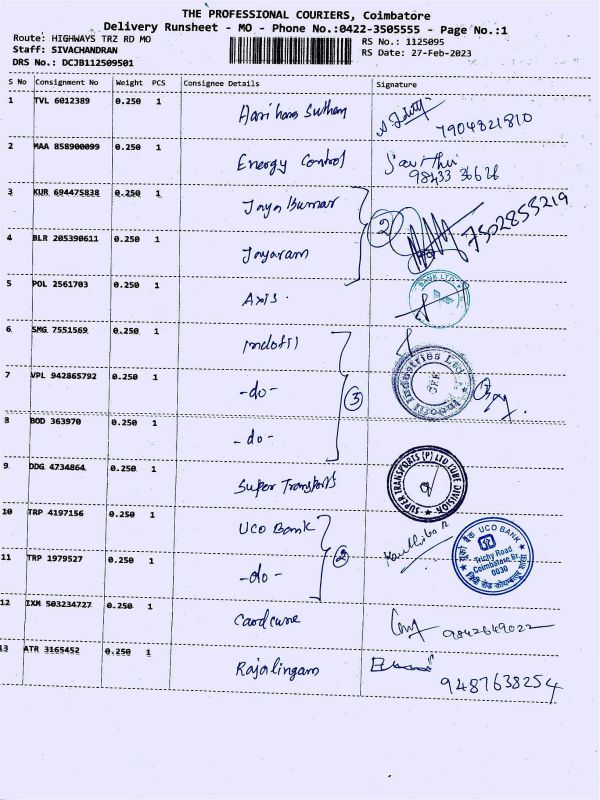 THE PROFESSIONAL COURIERS, Coimbatore
Delivery Runsheet - MO - Phone No.:0422-3505555 - Page No.:1
Route: HIGHWAYS TRZ RD MO
RS No.: 1125095
Staff: SIVACHANDRAN
RS Date: 27-Feb-2023
DRS No.: DCJB112509501
S No Consignment No Weight PCS Consignee Details Signature
1 TVL 6012389 0.250 1 Hari hara Suthan
7904821810
2 MAA 858900099 0.250 1 Energy Control
98433 36626
3 KUR 694475838 0.250 1 Jaya kumar
2 7502855219
4 BLR 205390611 0.250 1 Jayaram
5 POL 2561703 0.250 1 Axis.
BANK LTD
6 SMG 7551569 0.250 1
Industries Ltd
7 VPL 942865792 0.250 1 -do- 3
8 BOD 363970 0.250 1 -do-
9 DDG 4734864 0.250 1 Super Transports
SUPER TRANSPORTS (P) LTD
DIVISION
10 TRP 4197156 0.250 1 UCO Bank
UCO BANK
Trichy Road
Coimbatore Br.
0030
11 TRP 1979527 0.250 1 -do- 2
12 IXM 503234727 0.250 1
9842649022
13 ATR 3165452 0.250 1 Rajalingam
9487638254